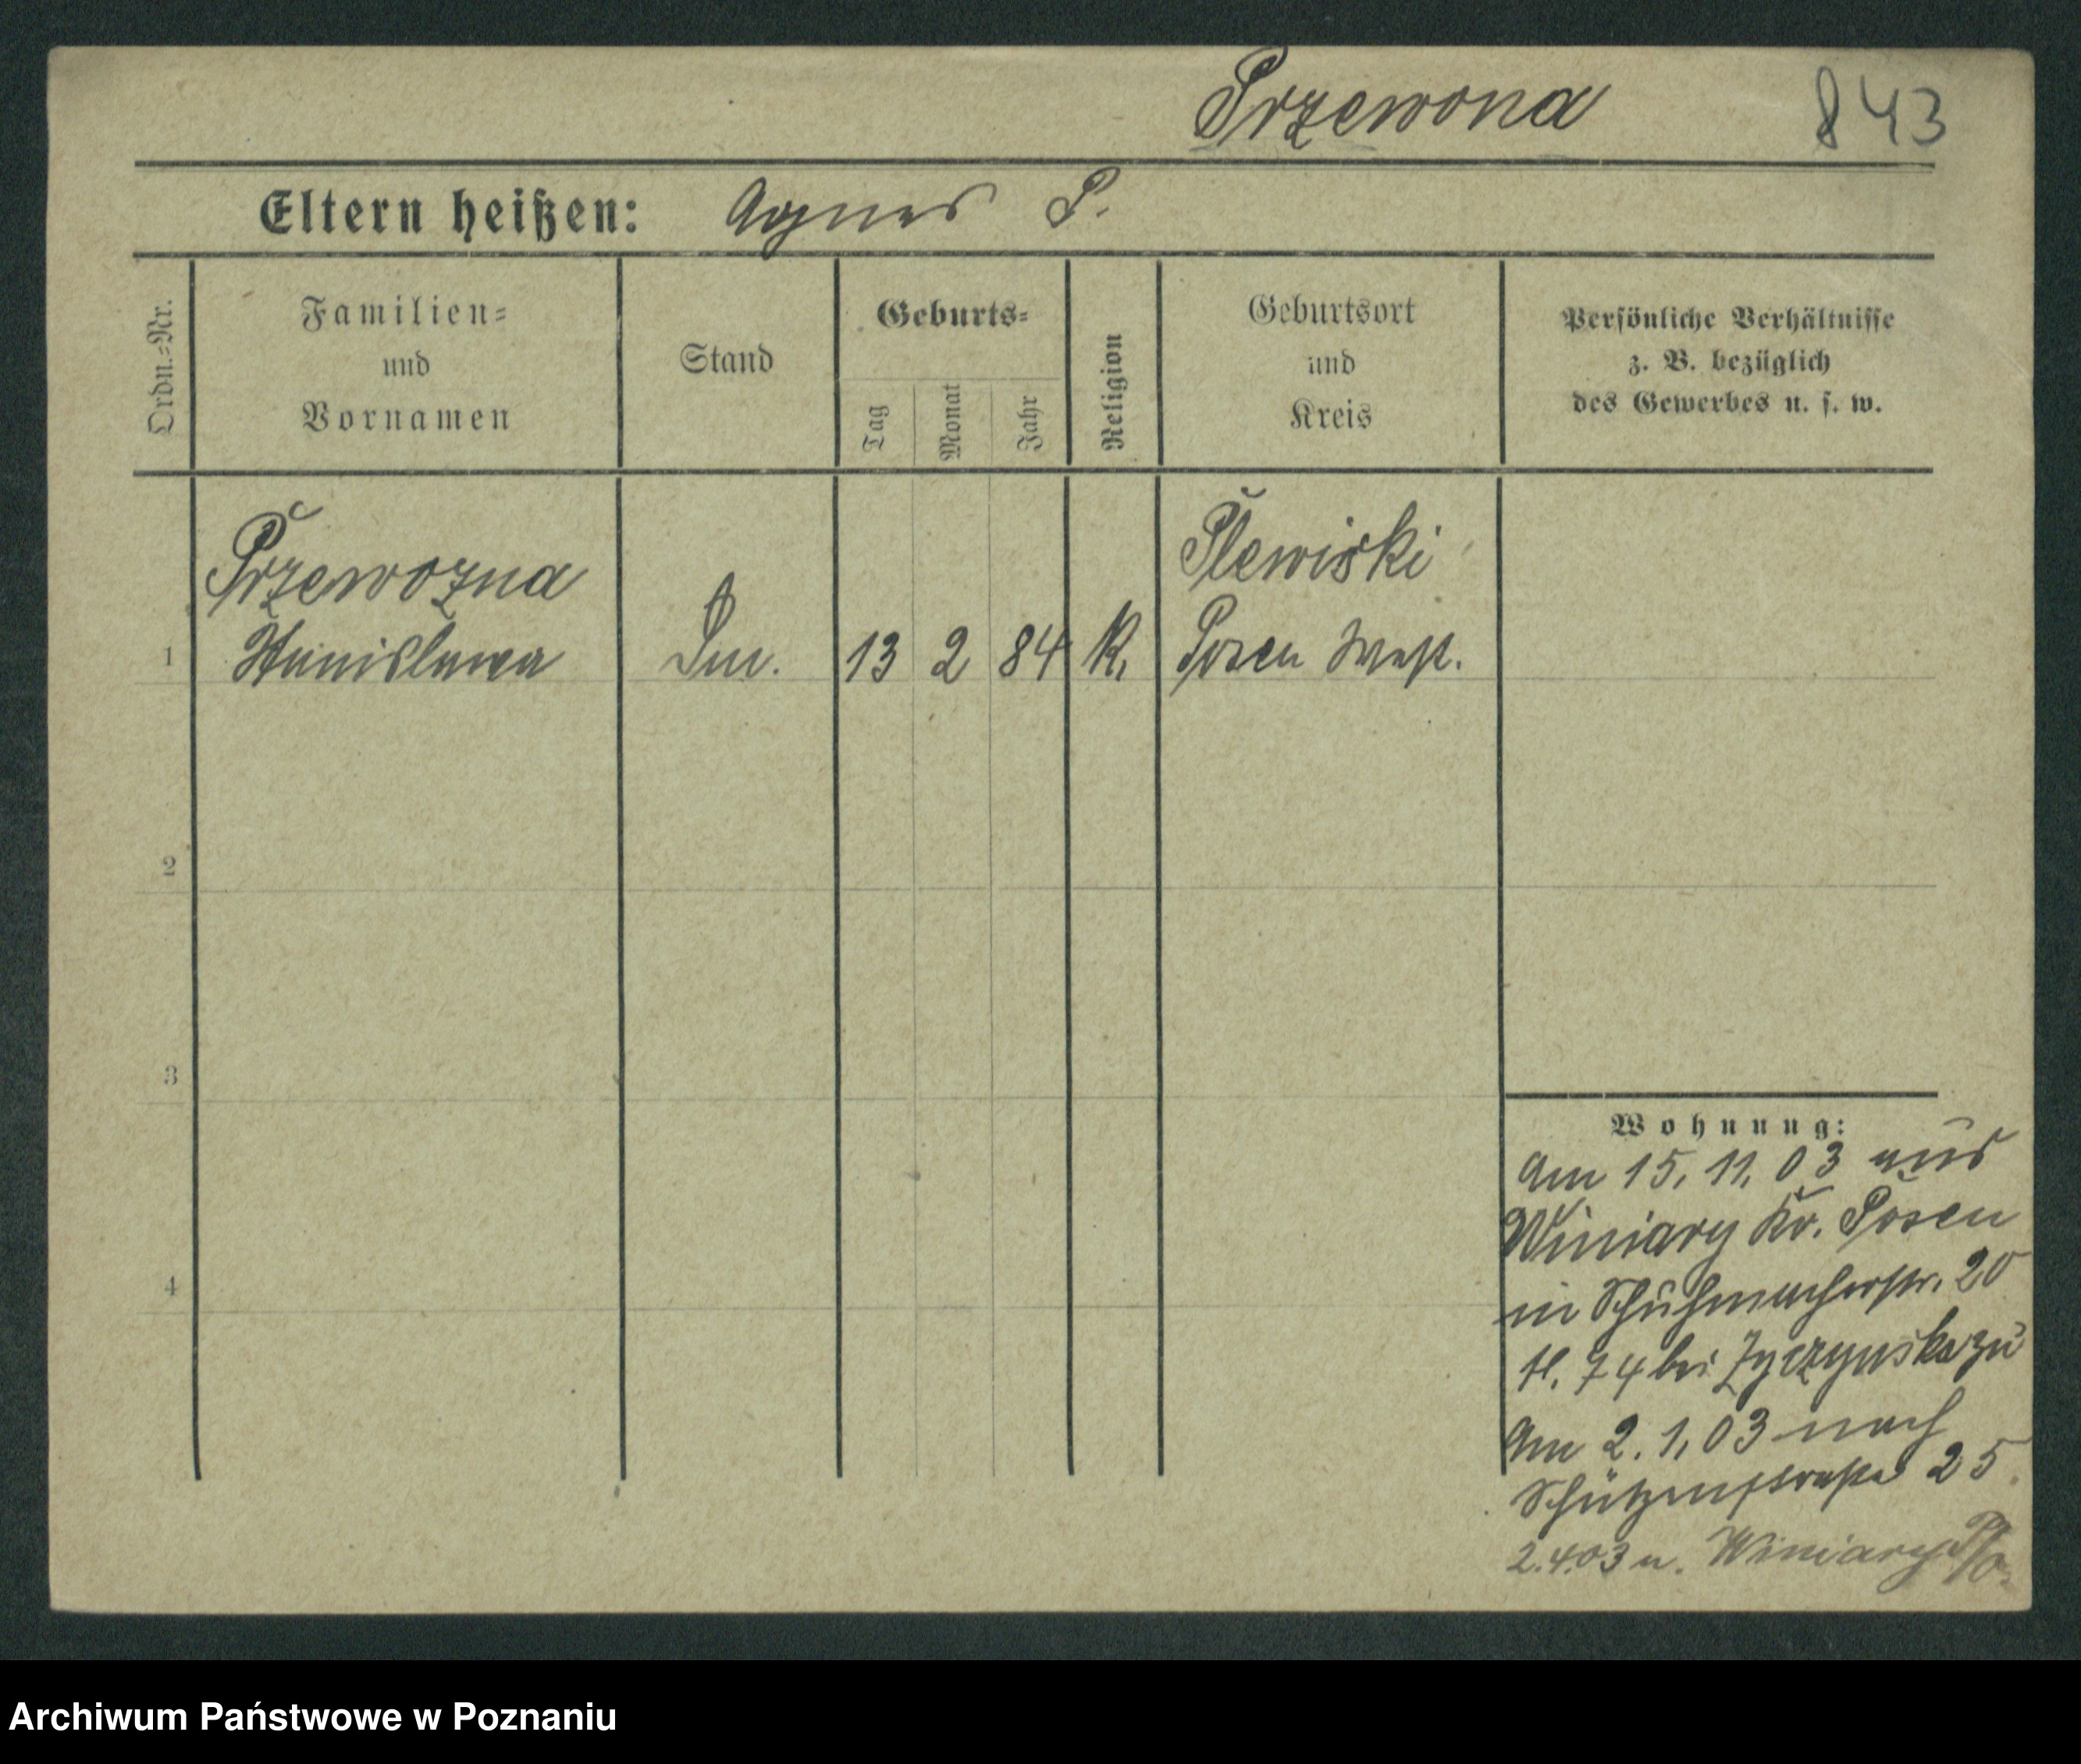 Przewona 843
Eltern heißen: Agnes P.
Ordn.=Nr.
Familien=
und
Vornamen
Stand
Geburts=
Tag
Monat
Jahr
Religion
Geburtsort
und
Kreis
Persönliche Verhältnisse
z. B. bezüglich
des Gewerbes u. s. w.
Przewozna Plewiski
1 Stanislawa 13 2 84 K. Posen West.
2
3
4
Wohnung:
Am 15. 11. 03 aus
Winiary Kr. Posen
in Schuhmacherstr. 20
H. 74 bei Zyczynska zu
Am 2. 1. 03 nach
Schützenstraße 25
2.4.03 n. Winiary
Archiwum Państwowe w Poznaniu